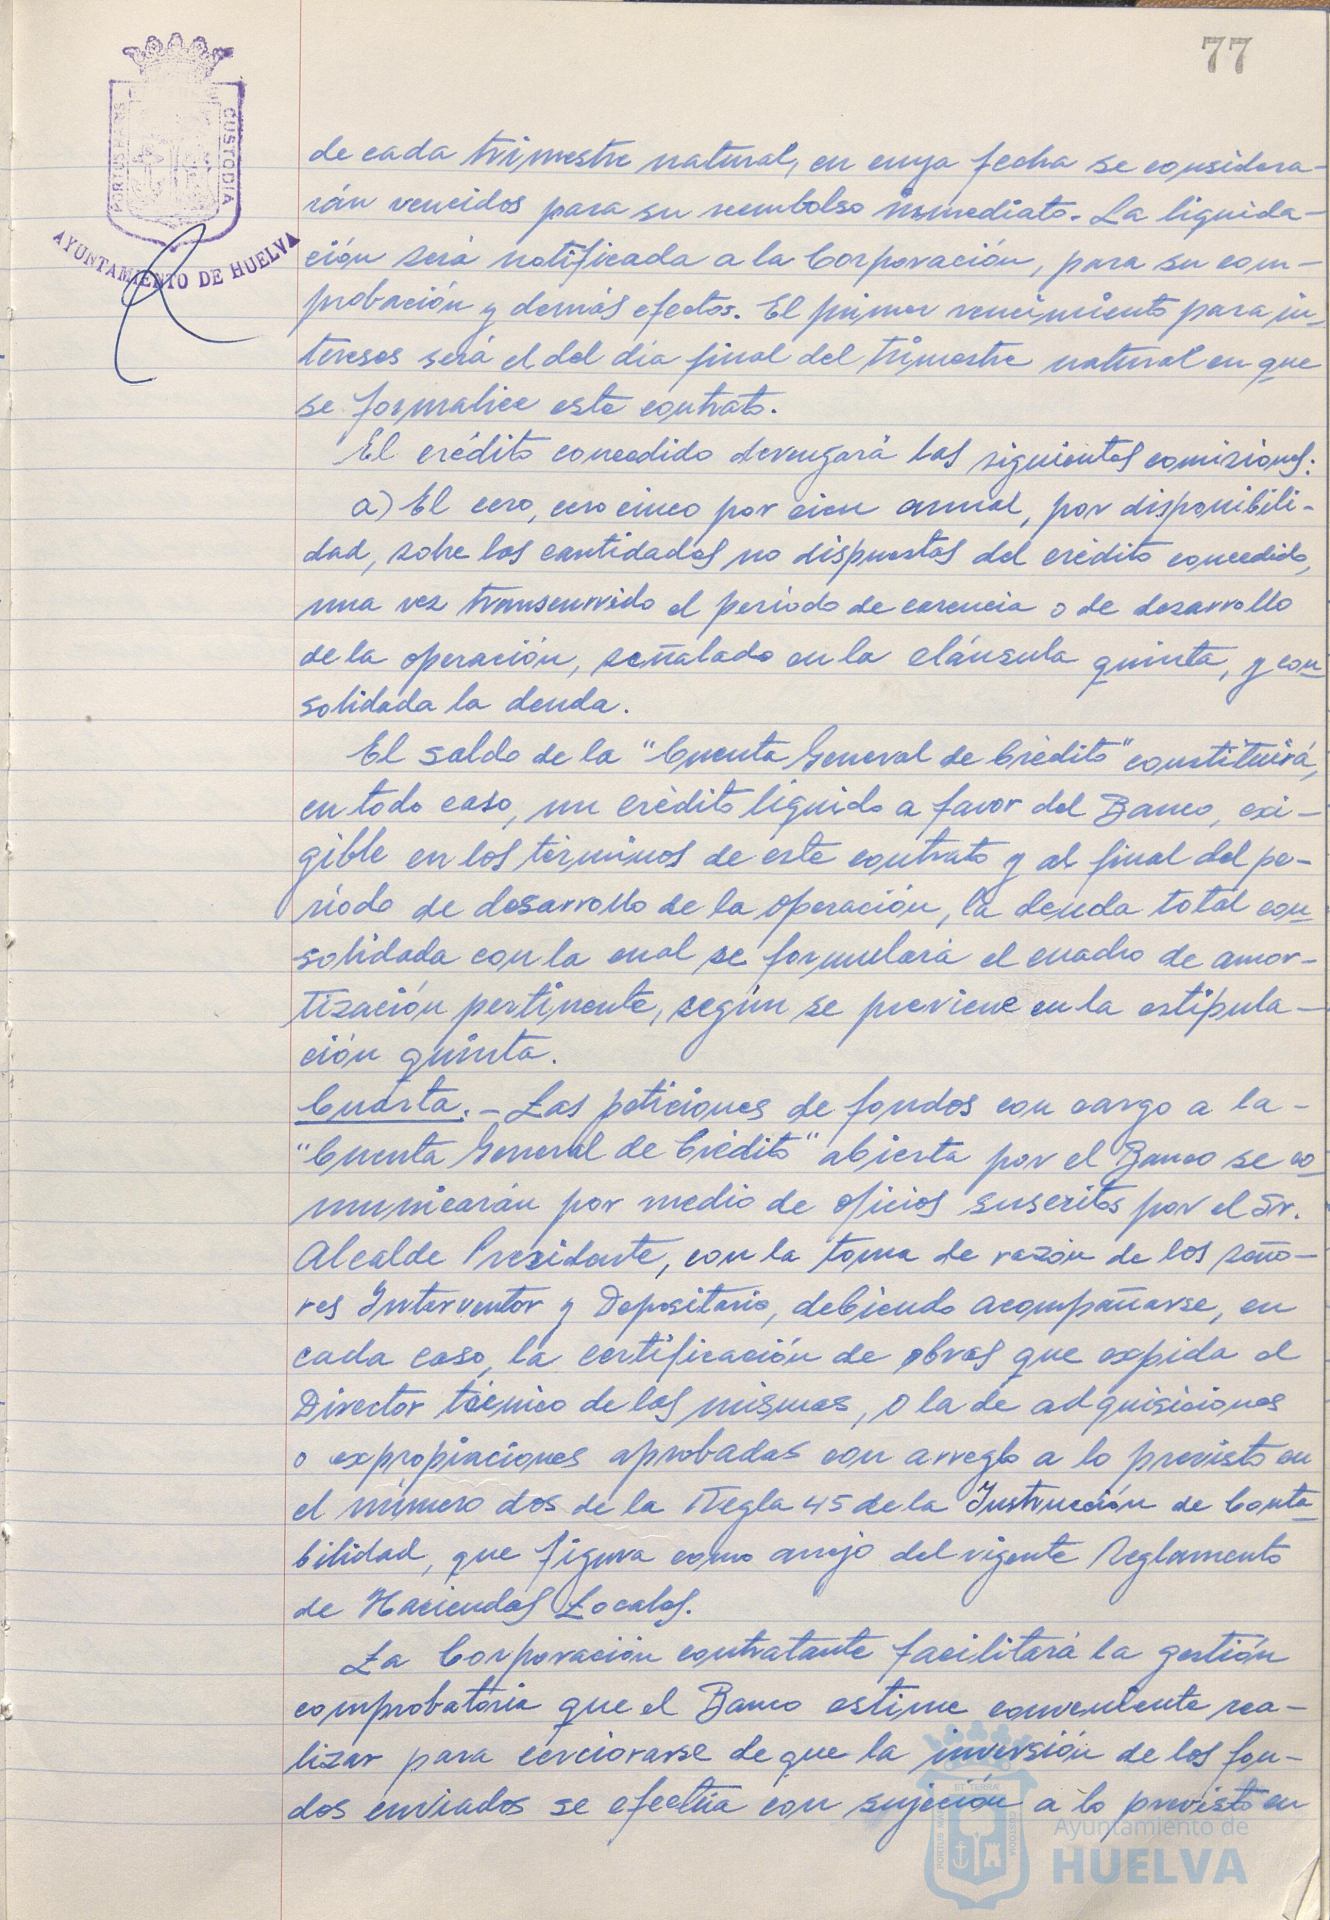 77
PORTUS MARIS
CUSTODIA
AYUNTAMIENTO DE HUELVA
de cada trimestre natural, en cuya fecha se considera-
rán vencidos para su reembolso inmediato. La liquida-
ción será notificada a la Corporación, para su com-
probación y demás efectos. El primer vencimiento para in-
tereses será el del día final del trimestre natural en que
se formalice este contrato.
El crédito concedido devengará las siguientes comisiones:
a) El cero, cero cinco por cien anual, por disponibili-
dad, sobre las cantidades no dispuestas del crédito concedido,
una vez transcurrido el período de carencia o de desarrollo
de la operación, señalado en la cláusula quinta, y con-
solidada la deuda.
El saldo de la "Cuenta General de Crédito" constituirá,
en todo caso, un crédito líquido a favor del Banco, exi-
gible en los términos de este contrato y al final del pe-
ríodo de desarrollo de la operación, la deuda total con-
solidada con la cual se formulará el cuadro de amor-
tización pertinente, según se previene en la estipula-
ción quinta.
Cuarta.- Las peticiones de fondos con cargo a la-
"Cuenta General de Crédito" abierta por el Banco se co-
municarán por medio de oficios suscritos por el Sr.
Alcalde Presidente, con la toma de razón de los seño-
res Interventor y Depositario, debiendo acompañarse, en
cada caso, la certificación de obras que expida el
Director técnico de las mismas, o la de adquisiciones
o expropiaciones aprobadas con arreglo a lo previsto en
el número dos de la Regla 45 de la Instrucción de Conta-
bilidad, que figura como anejo del vigente Reglamento
de Haciendas Locales.
La Corporación contratante facilitará la gestión
comprobatoria que el Banco estime conveniente rea-
lizar para cerciorarse de que la inversión de los fon-
dos enviados se efectúa con sujeción a lo previsto en
ET TERRÆ
PORTUS MARIS
CUSTODIA
Ayuntamiento de
HUELVA